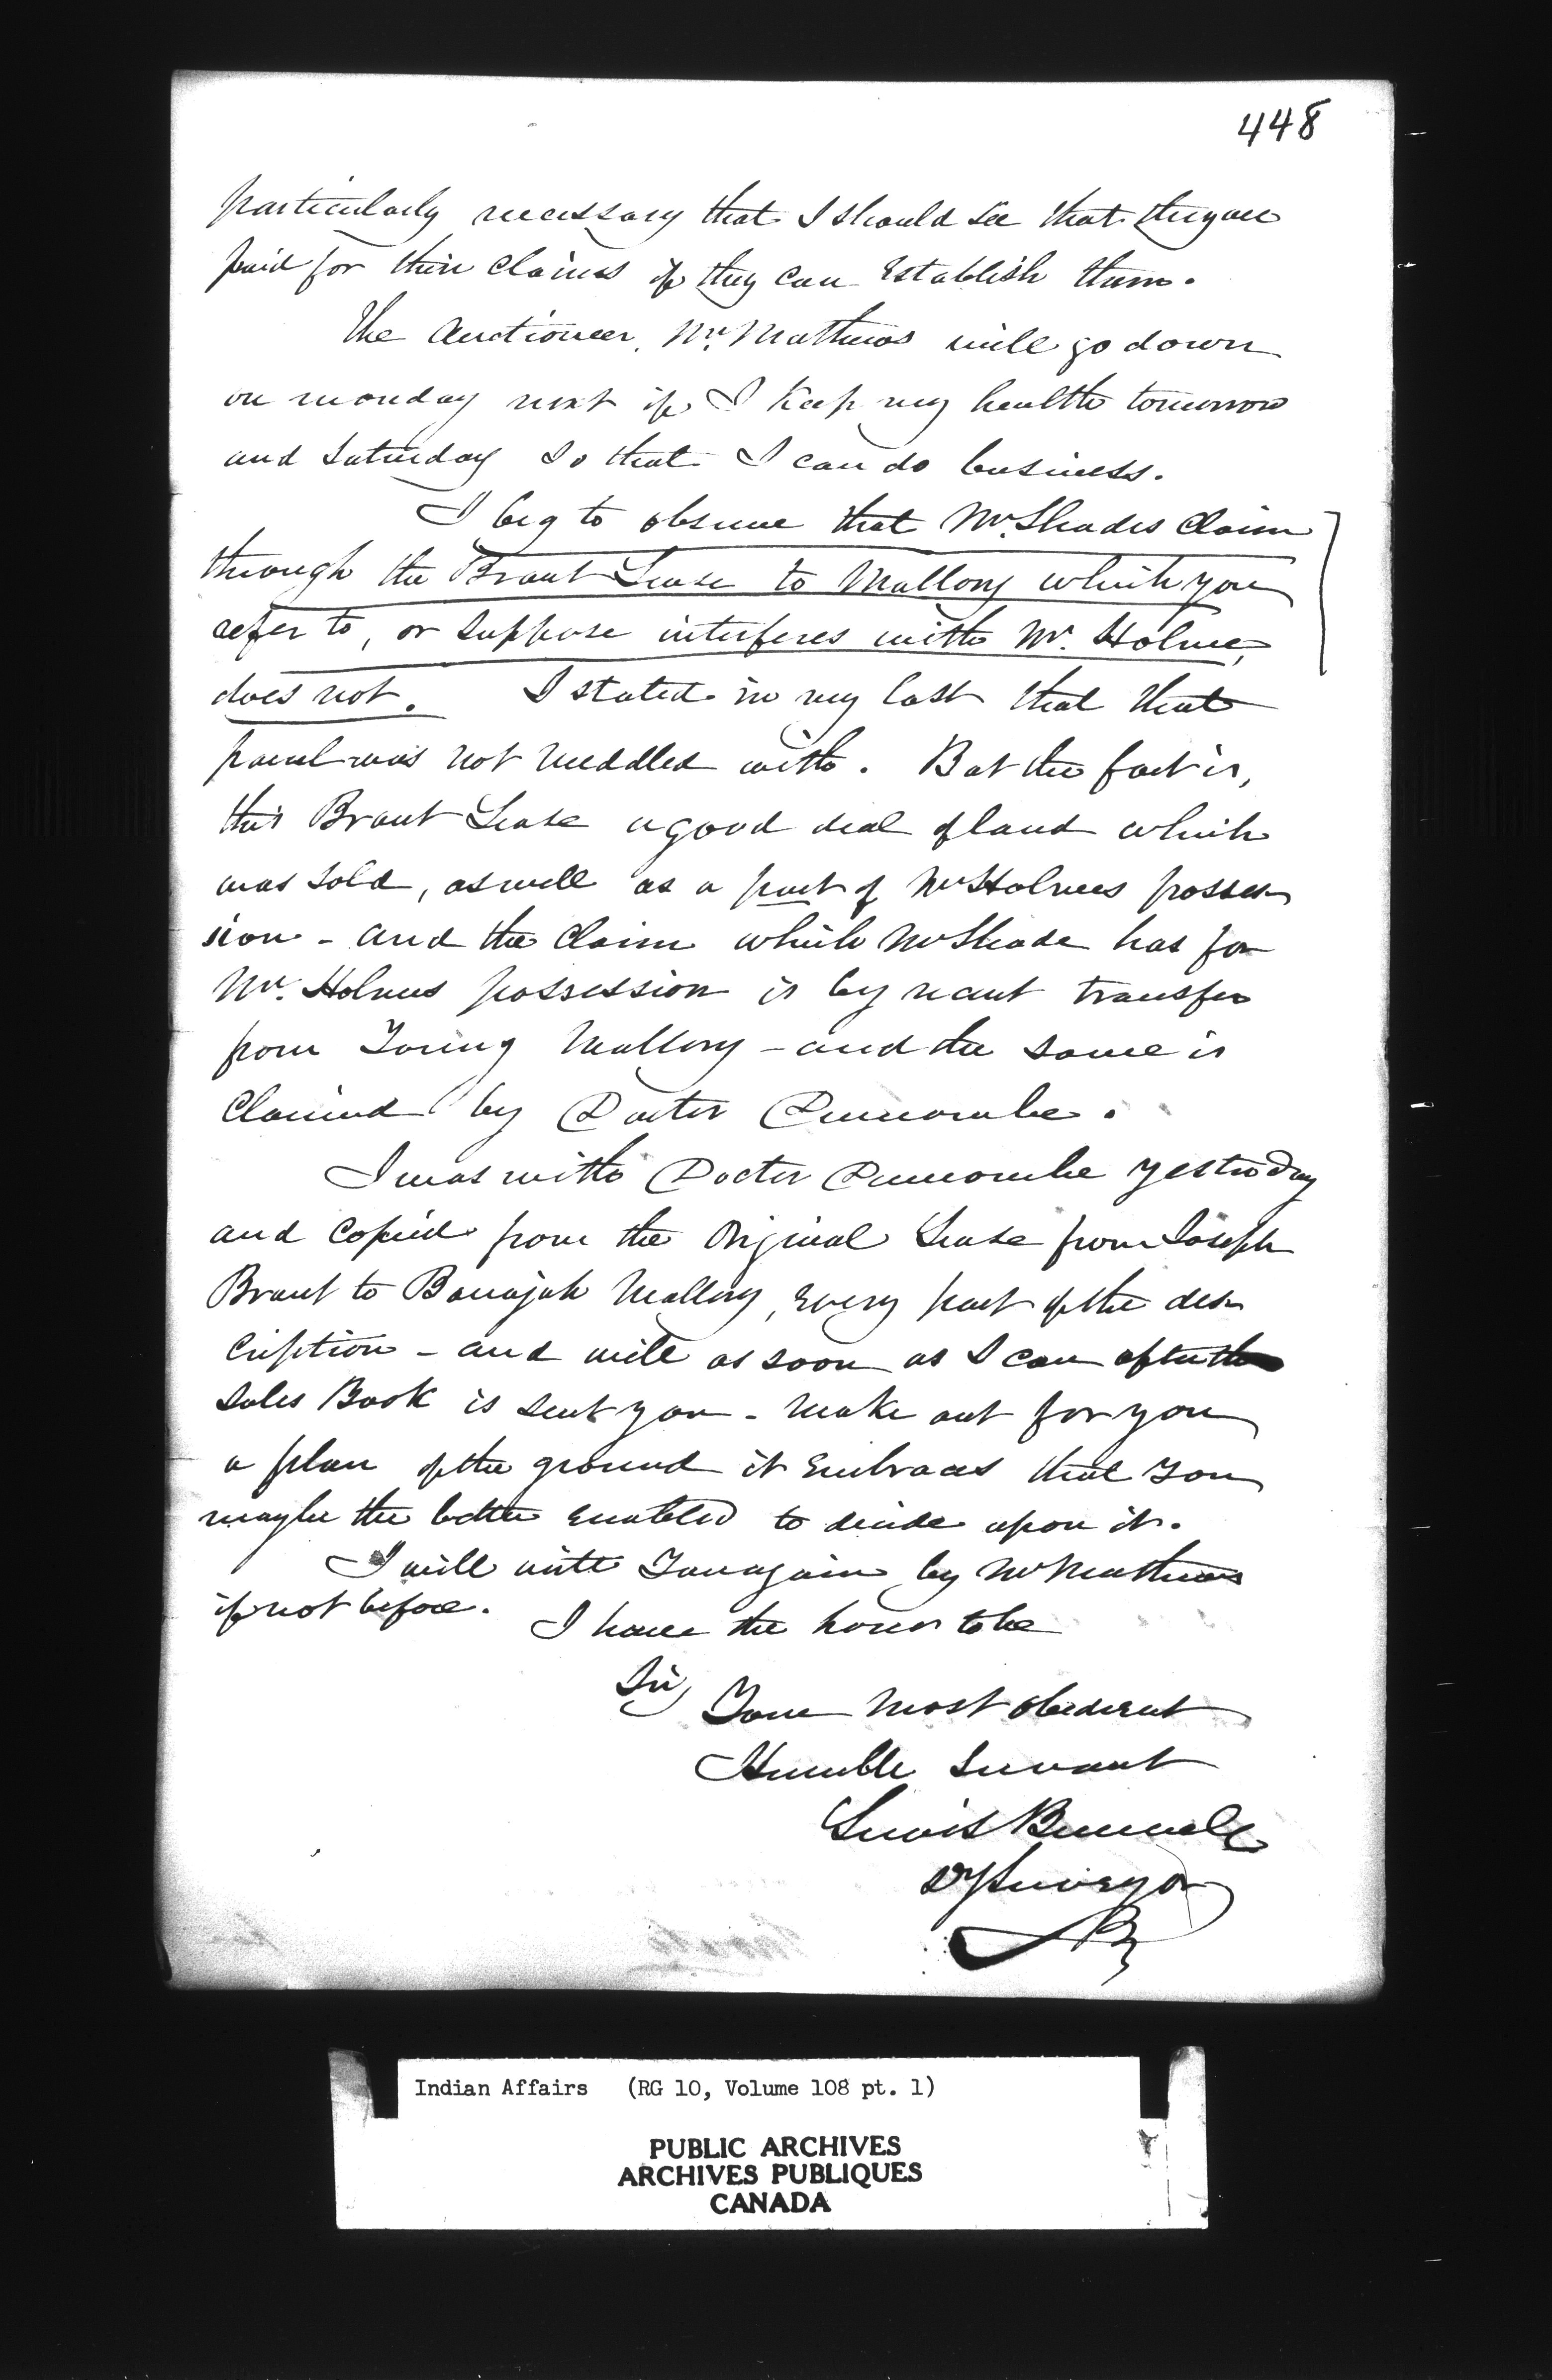 448
particularly necessary that I should see that they are
paid for their claims if they can Establish them.
The Auctioneer, Mr. Mathews will go down
on monday next if I Keep my health tomorrow
and Saturday so that I can do business.
I beg to observe that Mr. Shades Claim
through the Brant Lease to Mallory which you
refer to, or suppose interferes with Mr. Holme,
does not. I stated in my last that that
parcel was not meddled with. But the fact is,
this Brant Lease a good deal of land which
was sold, as well as a part of Mr Holmes posses
sion - and the Claim which Mr Shade has for
Mr. Holmes possession is by recant transfer
from Young Mallory - and the same is
Claimed by Docter Duncombe.
I was with Docter Duncombe yesterday
and Copied from the Original Lease from Joseph
Brant to Banajah Mallory, Every part of the des
cription - and will as soon as I can after the
Sales Book is sent you - make out for you
a plan of the ground it Embraces that You
may be the better Enabled to decide upon it.
I will write You again by Mr Mathews
if not before. I have the honor to be
Sir,
Your most obedient
Humble Servant
Lewis Burwell
Dy Surveyor
Indian Affairs (RG 10, Volume 108 pt. 1)
PUBLIC ARCHIVES
ARCHIVES PUBLIQUES
CANADA